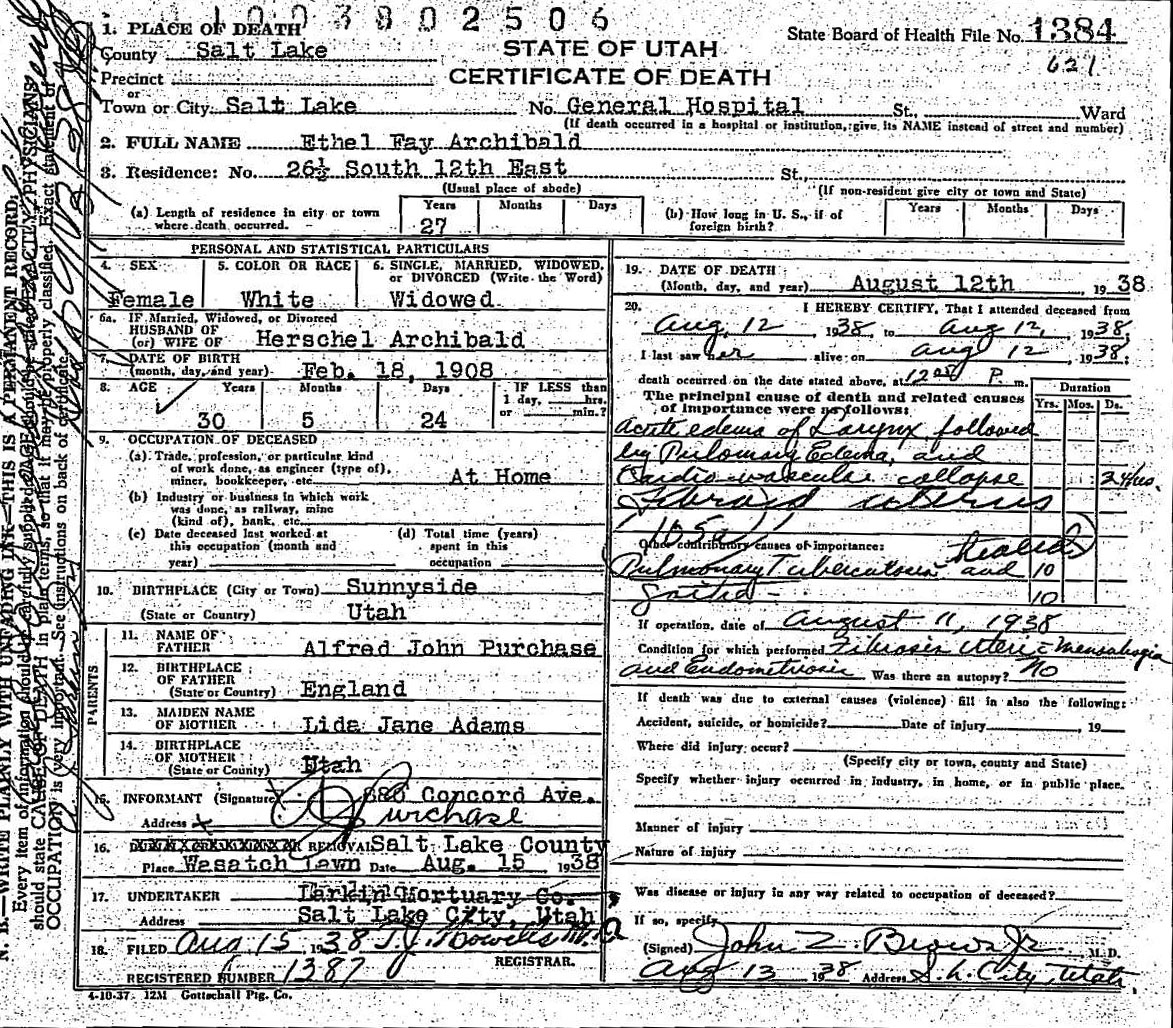 1003802506
1. PLACE OF DEATH
County Salt Lake
STATE OF UTAH
State Board of Health File No. 1384
621
Precinct
CERTIFICATE OF DEATH
or
Town or City Salt Lake No. General Hospital St., Ward
(If death occurred in a hospital or institution, give its NAME instead of street and number)
2. FULL NAME Ethel Fay Archibald
3. Residence: No. 26½ South 12th East St.,
(Usual place of abode) (If non-resident give city or town and State)
(a) Length of residence in city or town where death occurred. Years 27 Months Days
(b) How long in U. S., if of foreign birth? Years Months Days
PERSONAL AND STATISTICAL PARTICULARS
4. SEX Female
5. COLOR OR RACE White
6. SINGLE, MARRIED, WIDOWED, or DIVORCED (Write the Word) Widowed
6a. IF Married, Widowed, or Divorced
HUSBAND OF
(or) WIFE OF Herschel Archibald
7. DATE OF BIRTH
(month, day, and year) Feb. 18, 1908
8. AGE Years Months Days IF LESS than
1 day, hrs.
or min.?
30 5 24
9. OCCUPATION OF DECEASED
(a) Trade, profession, or particular kind
of work done, as engineer (type of),
miner, bookkeeper, etc. At Home
(b) Industry or business in which work
was done, as railway, mine
(kind of), bank, etc.
(c) Date deceased last worked at
this occupation (month and
year)
(d) Total time (years)
spent in this
occupation
10. BIRTHPLACE (City or Town) Sunnyside
(State or Country) Utah
PARENTS
11. NAME OF
FATHER Alfred John Purchase
12. BIRTHPLACE
OF FATHER
(State or Country) England
13. MAIDEN NAME
OF MOTHER Lida Jane Adams
14. BIRTHPLACE
OF MOTHER
(State or County) Utah
15. INFORMANT (Signature) Purchase
Address x 886 Concord Ave.
16. REMOVAL Salt Lake County
Place Wasatch Lawn Date Aug. 15 1938
17. UNDERTAKER Larkin Mortuary Co.
Address Salt Lake City, Utah
18. FILED Aug 15 1938 T. J. Howells M.D.
REGISTRAR.
REGISTERED NUMBER 1387
4-10-37 12M Gottschall Ptg. Co.
19. DATE OF DEATH
(Month, day, and year) August 12th 1938
20. I HEREBY CERTIFY, That I attended deceased from
Aug. 12 1938, to Aug 12, 1938,
I last saw her alive on Aug 12, 1938;
death occurred on the date stated above, at 12 P. m.
The principal cause of death and related causes
of importance were as follows:
Duration
Yrs. Mos. Ds.
Acute edema of Larynx followed
by Pulmonary Edema, and
Cardio-vascular collapse 24 hrs.
Fibroid uterus
Other contributory causes of importance: healed
Pulmonary Tuberculosis and 10
Goitre 10
If operation, date of August 11, 1938
Condition for which performed Fibrosis Uteri - Menorrhagia
and Endometriosis Was there an autopsy? No
If death was due to external causes (violence) fill in also the following:
Accident, suicide, or homicide? Date of injury , 19
Where did injury occur?
(Specify city or town, county and State)
Specify whether injury occurred in industry, in home, or in public place.
Manner of injury
Nature of injury
Was disease or injury in any way related to occupation of deceased?
If so, specify
(Signed) John Z. Brown Jr. M. D.
Aug 13 1938 Address S. L. City, Utah.
N. B.—WRITE PLAINLY WITH UNFADING INK—THIS IS A PERMANENT RECORD.
Every item of information should be carefully supplied. AGE should be stated EXACTLY. PHYSICIANS
should state CAUSE OF DEATH in plain terms, so that it may be properly classified. Exact statement of
OCCUPATION is very important. See instructions on back of certificate.